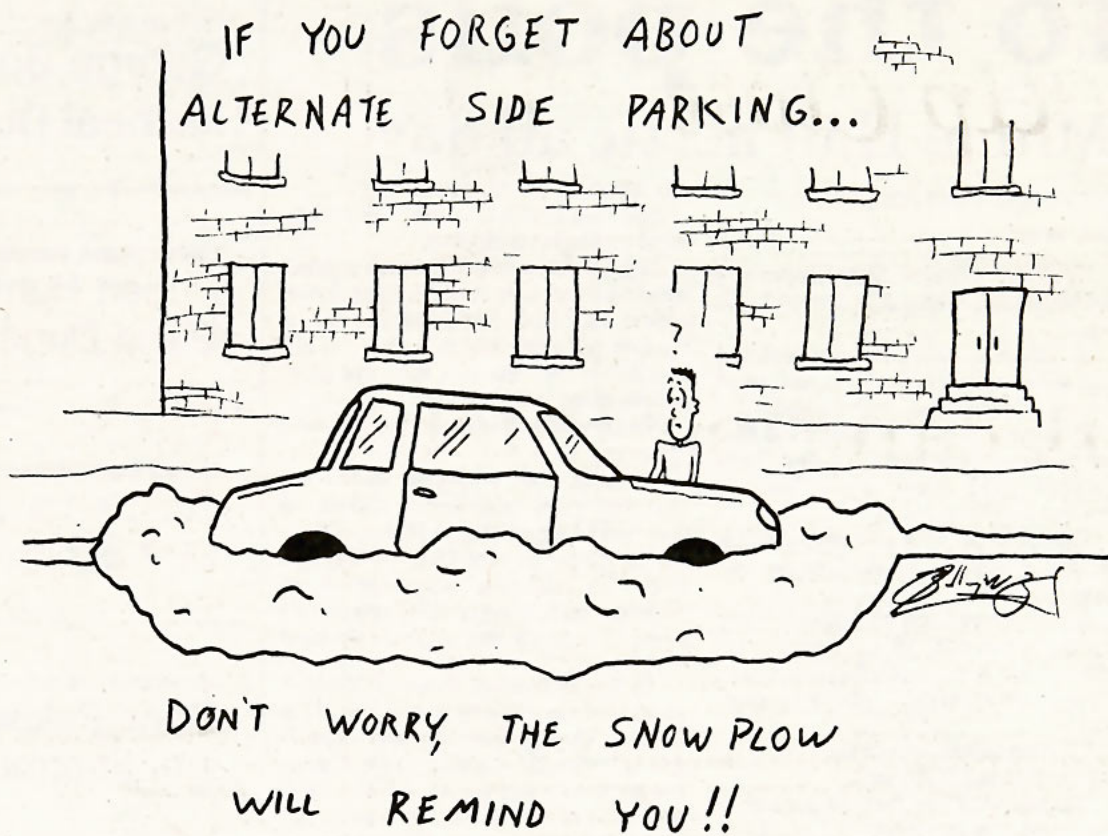 IF YOU FORGET ABOUT
ALTERNATE SIDE PARKING...
?
DON'T WORRY, THE SNOW PLOW
WILL REMIND YOU!!